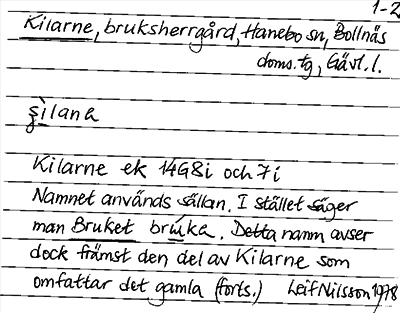 1-2
Kilarne, bruksherrgård, Hanebo sn, Bollnäs
doms. tg, Gävl. l.
şìlana
Kilarne ek 14G8i och 7i
Namnet används sällan. I stället säger
man Bruket brúka. Detta namn avser
dock främst den del av Kilarne som
omfattar det gamla (forts.) Leif Nilsson 1978